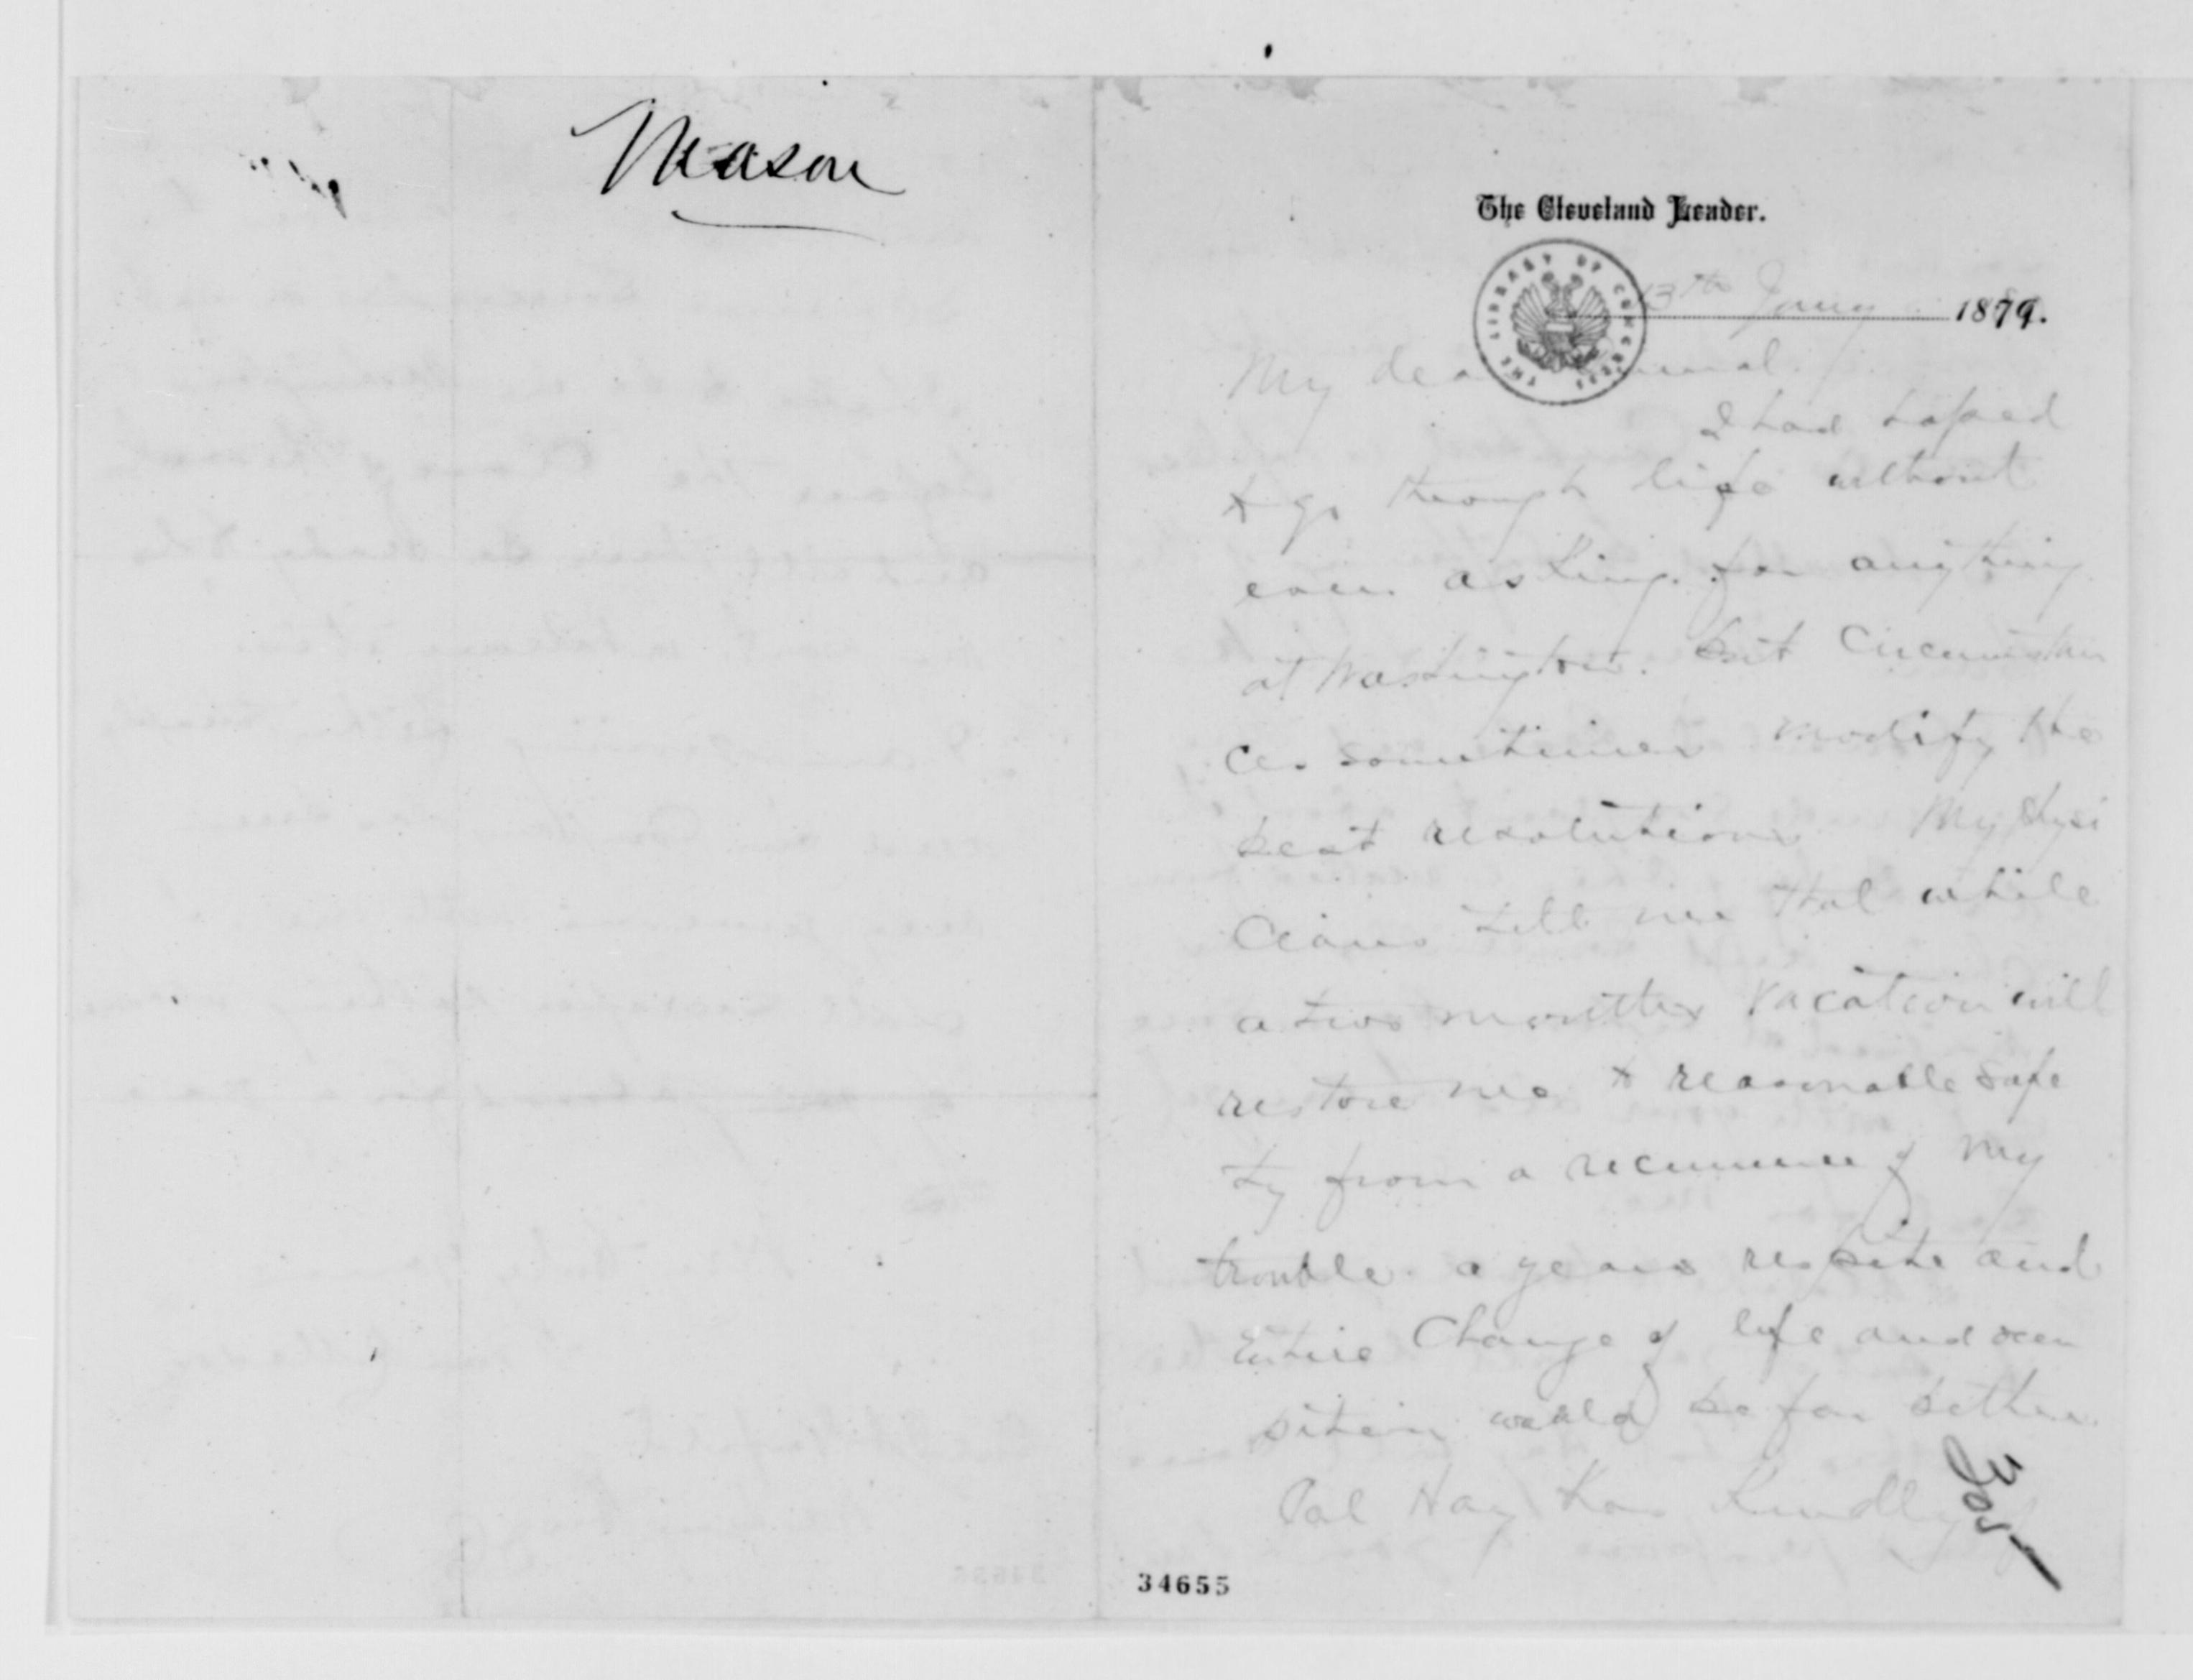 Mason
The Cleveland Leader.
13th Jany 1879.
THE LIBRARY OF CONGRESS
My dear
I had hoped
to go through life without
even asking for anything
at Washington. but Circumstan
ces sometimes modify the
best resolutions My Physi
cians tell me that while
a two months vacation will
restore me to reasonable safe
ty from a recurrence of my
trouble. a years respite and
entire Change of life and occu
would be far better.
Col Hay has kindly
305
34655